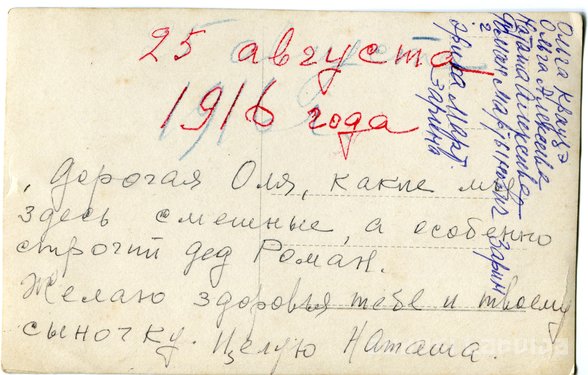 25 августа
1916 года
Дорогая Оля, какие мы
здесь смешные, а особенно
строгий дед Роман.
Желаю здоровья тебе и твоему
сыночку. Целую Наташа.
Ольга Краузэ
Ольга Алексеевна
Роман Мартынович Зарин
Зарина